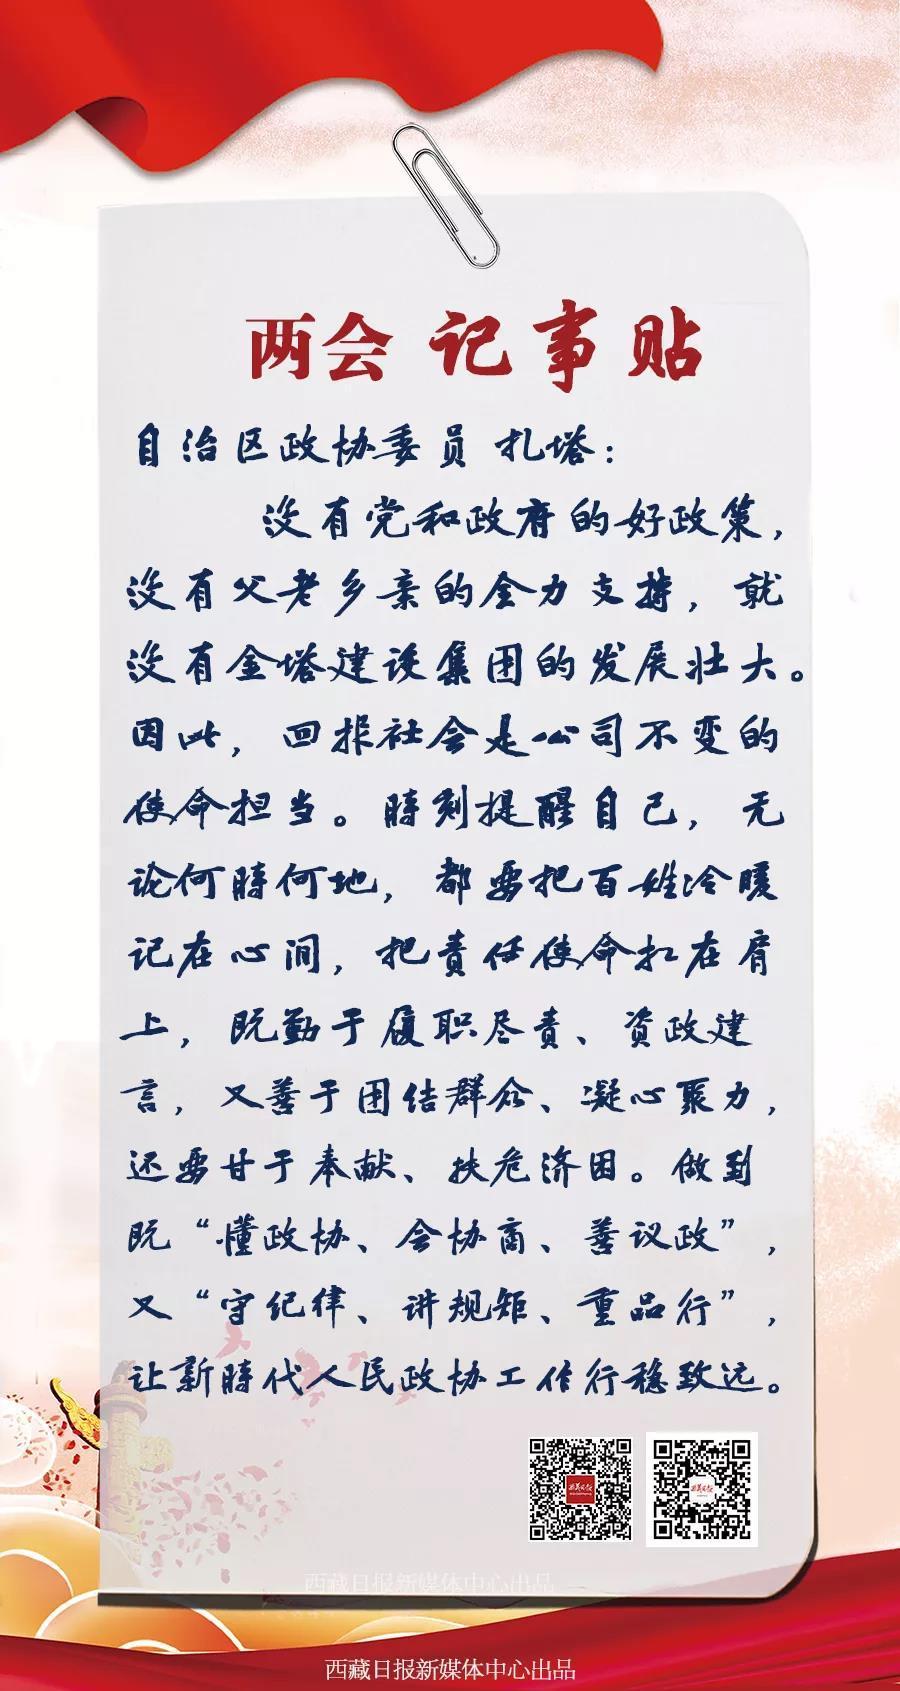 两会 记事贴
自治区政协委员 扎塔：
没有党和政府的好政策，
没有父老乡亲的全力支持，就
没有金塔建设集团的发展壮大。
因此，回报社会是公司不变的
使命担当。時刻提醒自己，无
论何時何地，都要把百姓冷暖
记在心间，把责任使命扛在肩
上，既勤于履职尽责、资政建
言，又善于团结群众、凝心聚力，
还要甘于奉献、扶危济困。做到
既“懂政协、会协商、善议政”，
又“守纪律、讲规矩、重品行”，
让新時代人民政协工作行稳致远。
西藏日报新媒体中心出品
西藏日报新媒体中心出品